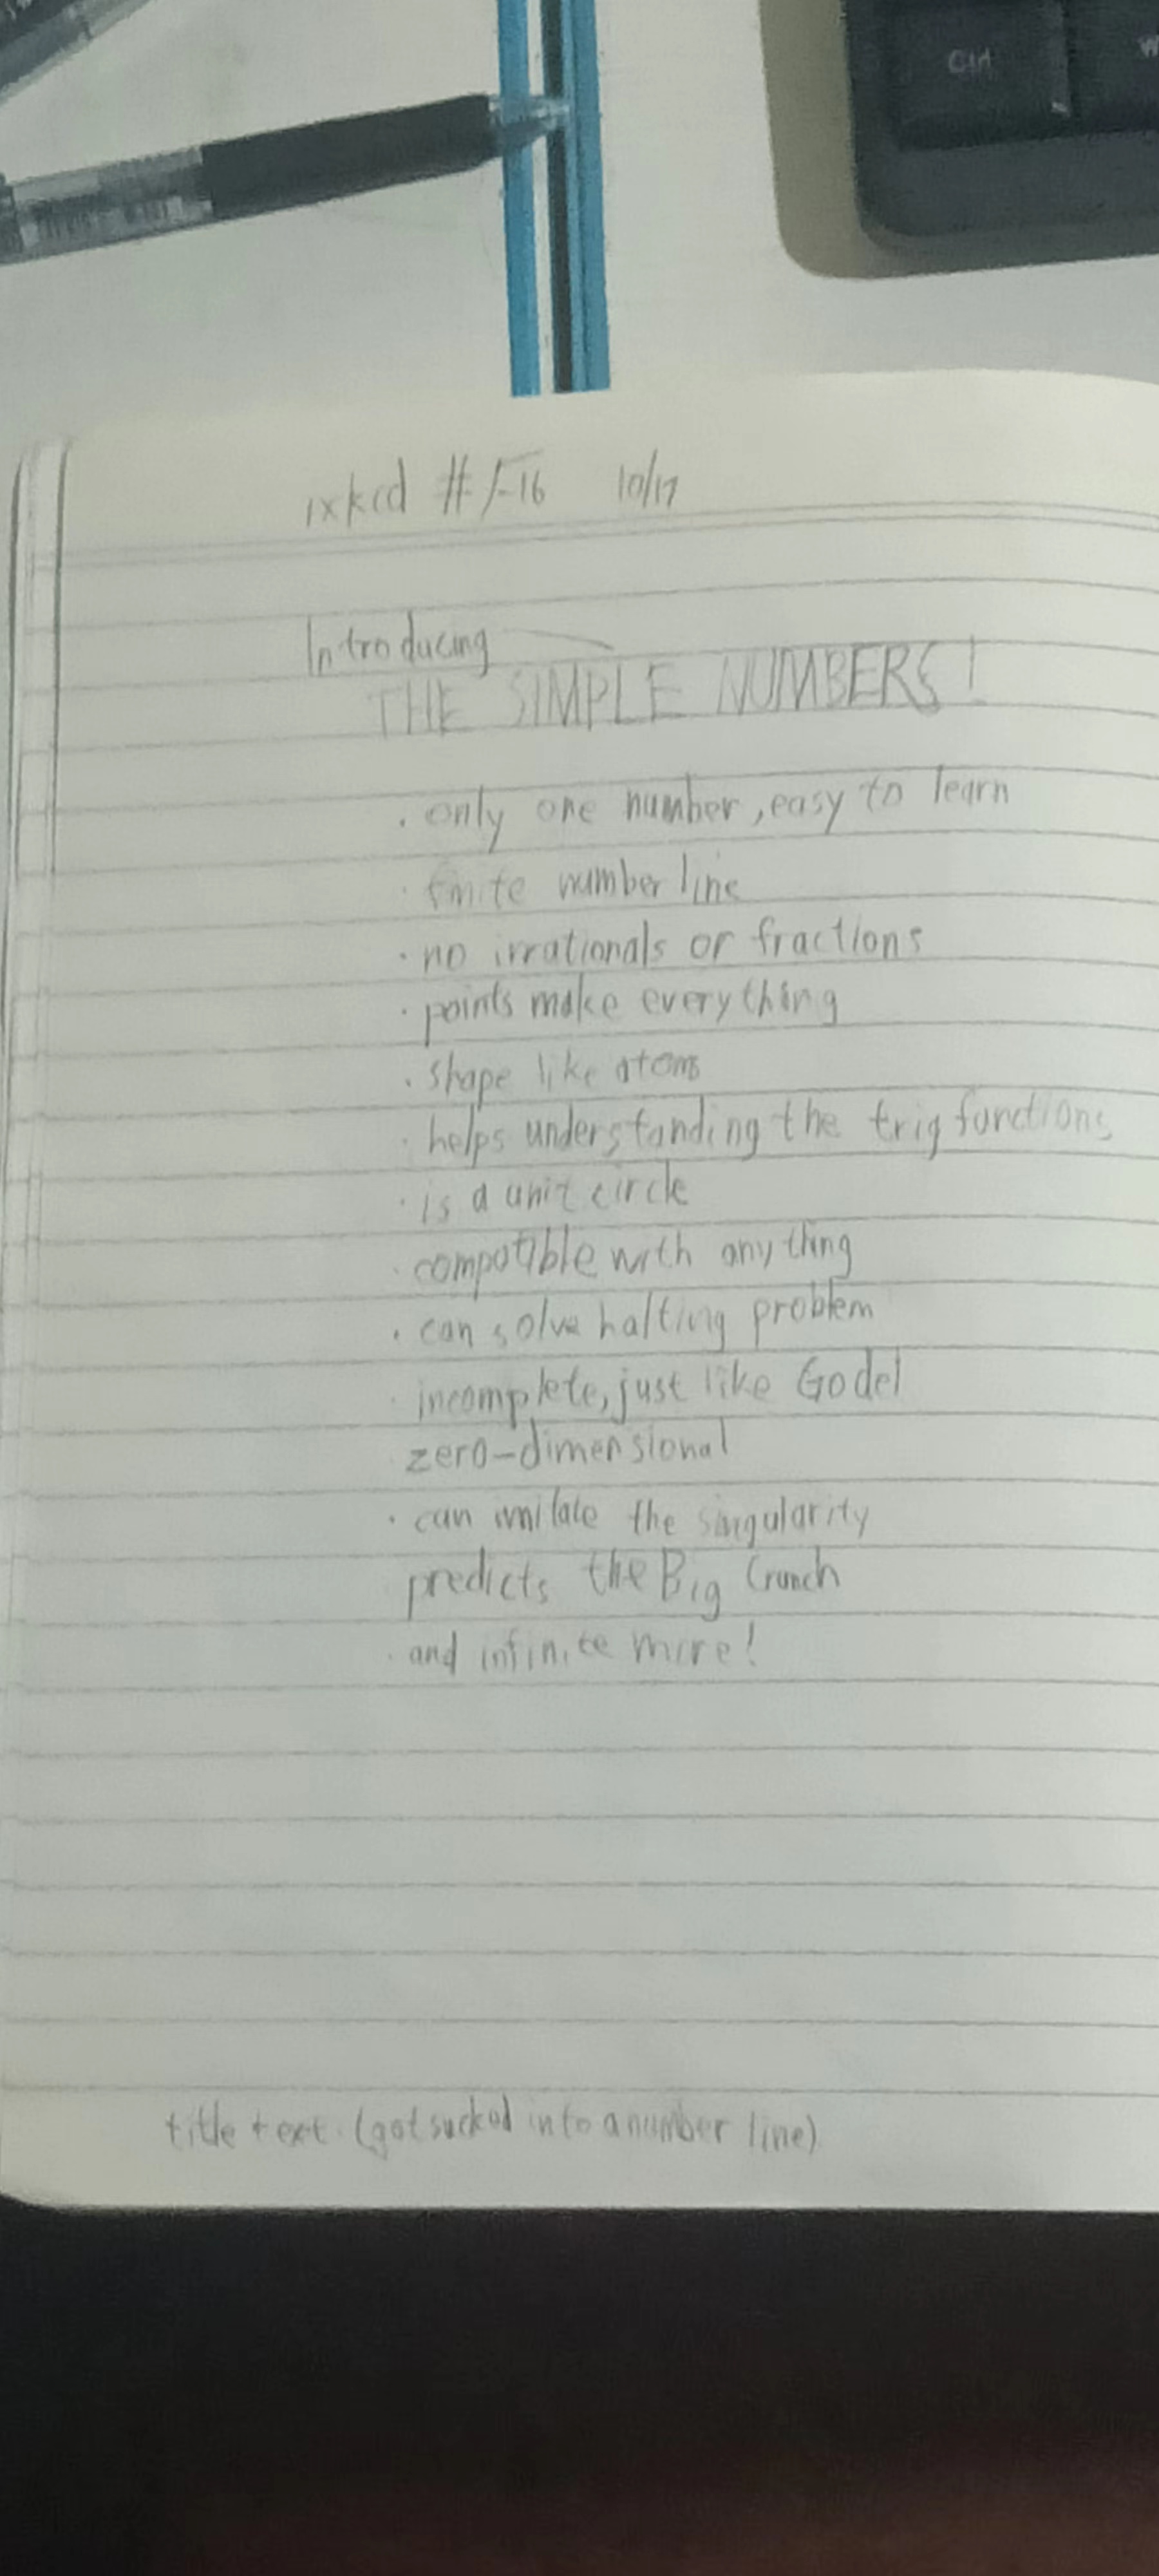 Ctrl
W
ixkcd #√-16 10/17
Introducing
THE SIMPLE NUMBERS!
· only one number, easy to learn
· finite number line
· no irrationals or fractions
· points make everything
· shape like atoms
· helps understanding the trig functions
· is a unit circle
· compatible with anything
· can solve halting problem
· incomplete, just like Godel
zero-dimensional
· can imitate the singularity
predicts the Big Crunch
· and infinite more!
title text. (got sucked into a number line)